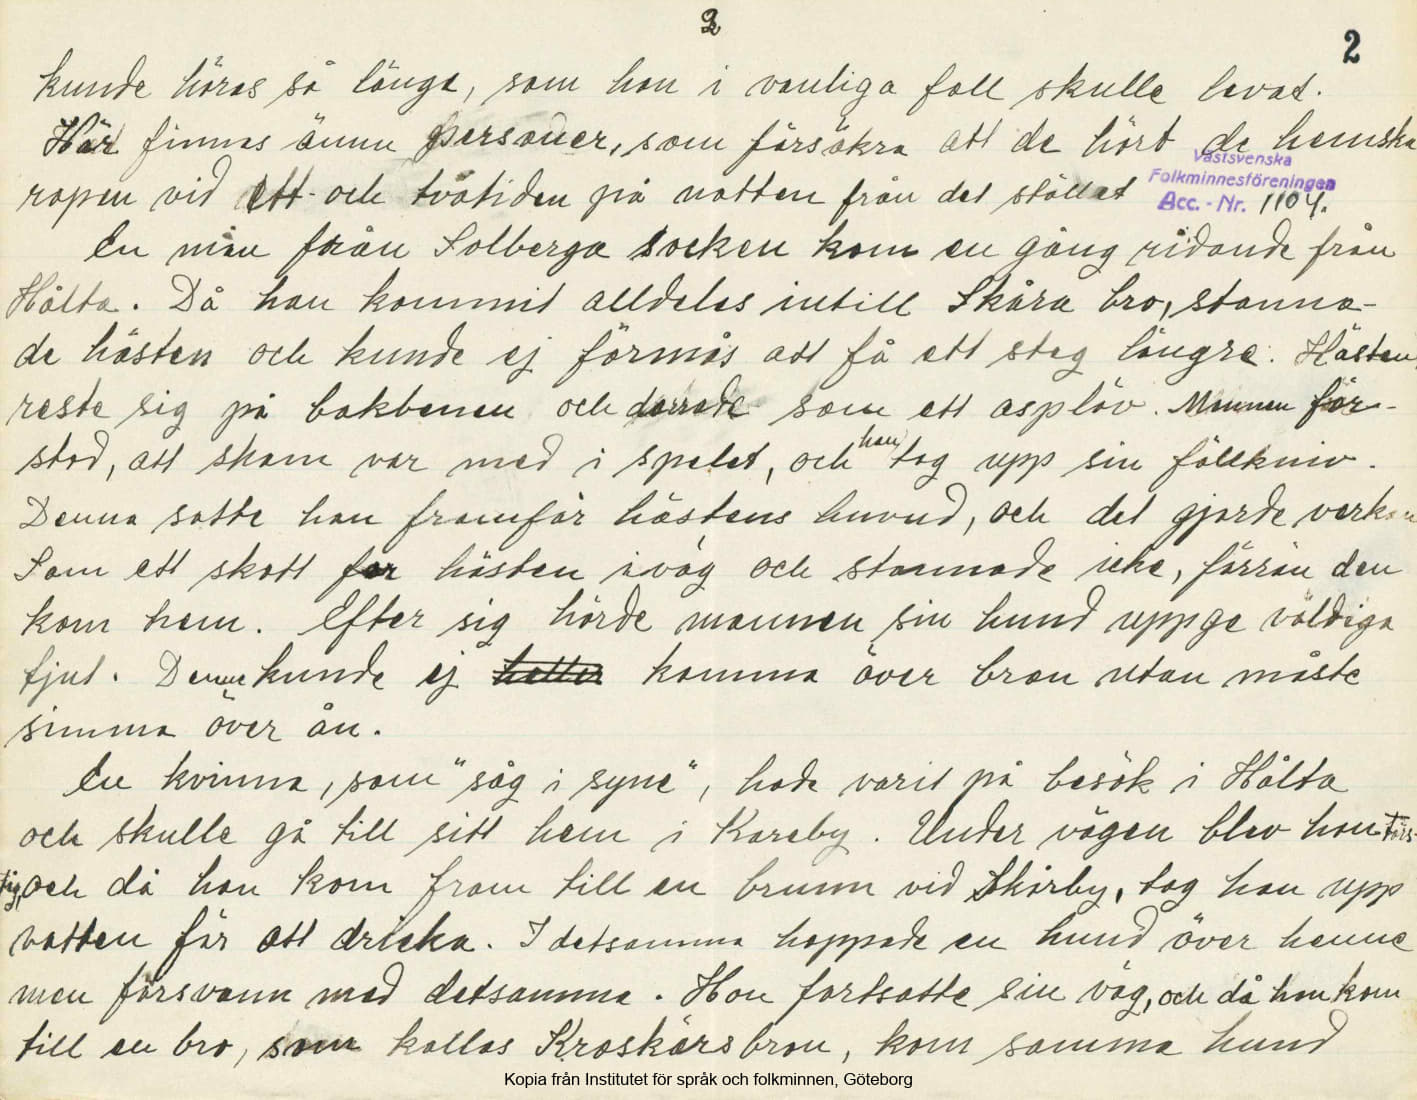 2
2
kunde höras så länge, som han i vanliga fall skulle levat.
Här finnas ännu personer, som försäkra att de hört de hemska
Västsvenska
Folkminnesföreningen
Acc. - Nr. 1104.
ropen vid ett- och tvåtiden på natten från det stället
En man från Solberga socken kom en gång ridande från
Hålta. Då han kommit alldeles intill Skåra bro, stanna-
de hästen och kunde ej förmås att få ett steg längre. Hästen
reste sig på bakbenen och darrade som ett asplöv. Mannen för-
stod, att skam var med i spelet, och han tog upp sin fällkniv.
Denna satte han framför hästens huvud, och det gjorde verkan
Som ett skott for hästen iväg och stannade icke, förrän den
kom hem. Efter sig hörde mannen sin hund uppge väldiga
tjut. Denne kunde ej heller komma över bron utan måste
simma över ån.
En kvinna, som "såg i syne", hade varit på besök i Hålta
och skulle gå till sitt hem i Kareby. Under vägen blev hon törs-
tig, och då hon kom fram till en brunn vid Skårby, tog hon upp
vatten för att dricka. I detsamma hoppade en hund över henne
men försvann med detsamma. Hon fortsatte sin väg, och då hon kom
till en bro, som kallas Kroskärsbron, kom samma hund
Kopia från Institutet för språk och folkminnen, Göteborg